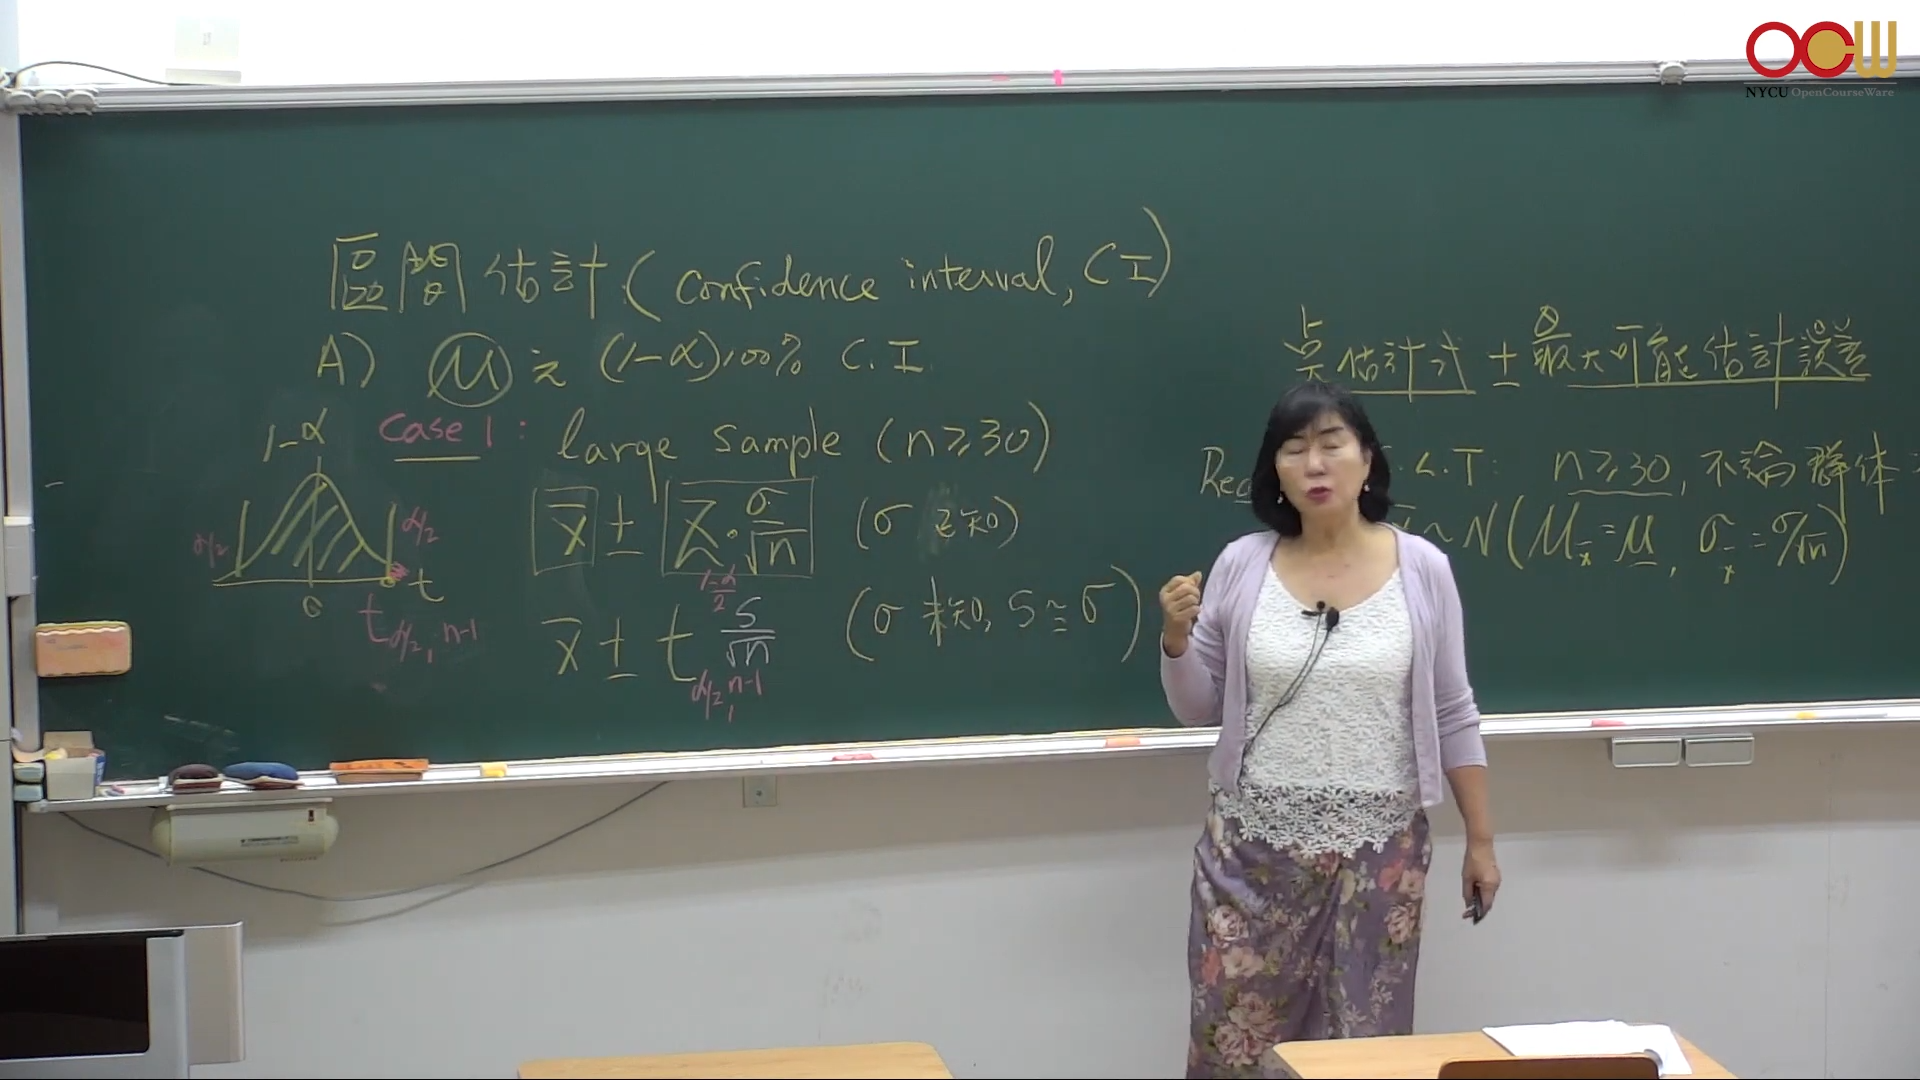 OCW
NYCU OpenCourseWare
區間估計 (confidence interval, CI)
A) μ 之 (1-α)100% C.I.
Case 1: large sample (n≥30)
x̄ ± Z(1-α)/2 · σ/√n (σ 已知)
x̄ ± t α/2, n-1 S/√n (σ 未知, S≅σ)
1-α
α/2
α/2
0
t
t α/2, n-1
點估計式 ± 最大可能估計誤差
θ
.L.T: n≥30, 不論群體
~N(μx̄=μ, σx̄=σ/√n)